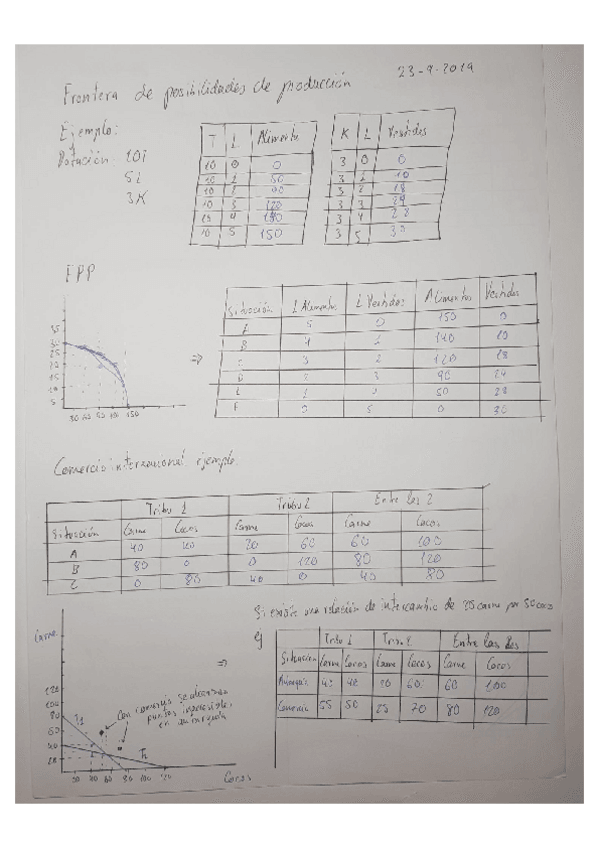 23-9-2019
Frontera de posibilidades de producción
Ejemplo:
Dotación: 10T
5L
3K
T L Alimentos
10 0 0
10 1 50
10 2 90
10 3 120
10 4 140
10 5 150
K L Vestidos
3 0 0
3 1 10
3 2 18
3 3 24
3 4 28
3 5 30
FPP
35
30
25
20
15
10
5
30 60 90 120 150
⇒
Situación L Alimentos L Vestidos Alimentos Vestidos
A 5 0 150 0
B 4 1 140 10
C 3 2 120 18
D 2 3 90 24
E 1 4 50 28
F 0 5 0 30
Comercio internacional: ejemplo:
Tribu 1 Tribu 2 Entre las 2
Situación Carne Cocos Carne Cocos Carne Cocos
A 40 40 20 60 60 100
B 80 0 0 120 80 120
C 0 80 40 0 40 80
Si existe una relación de intercambio de 25 carne por 50 coco
Carne
120
100
80
60
40
20
T1
Con comercio se alcanzan
puntos inaccesibles
en autarquía
T2
20 40 60 80 100 120
Cocos
⇒
Tribu 1 Tribu 2 Entre las dos
Situación Carne Cocos Carne Cocos Carne Cocos
Autarquía 40 40 20 60 60 100
Comercio 55 50 25 70 80 120